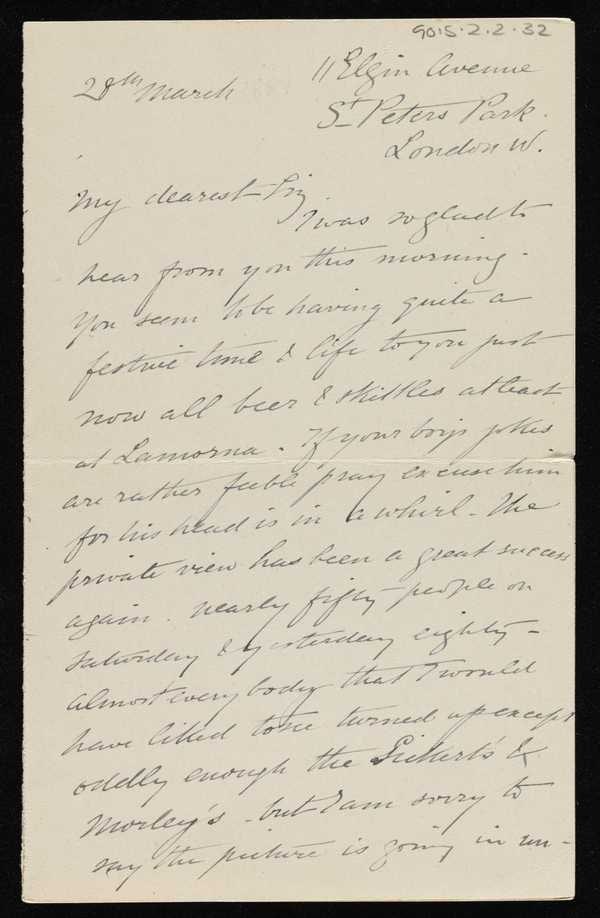 9015.2.2.32
11 Elgin Avenue
28th March
St Peters Park.
London W.
My dearest Liz.
I was so glad to
hear from you this morning.
You seem to be having quite a
festive time & life to you just
now all beer & skittles at least
at Lamorna. If your boys jokes
are rather feeble pray excuse him
for his head is in a whirl - The
private view has been a great success
again. Nearly fifty people on
Saturday & yesterday eighty -
almost every body that I would
have liked to see turned up except
oddly enough the Sickert's &
Morley's - but I am sorry to
say the picture is going in un-